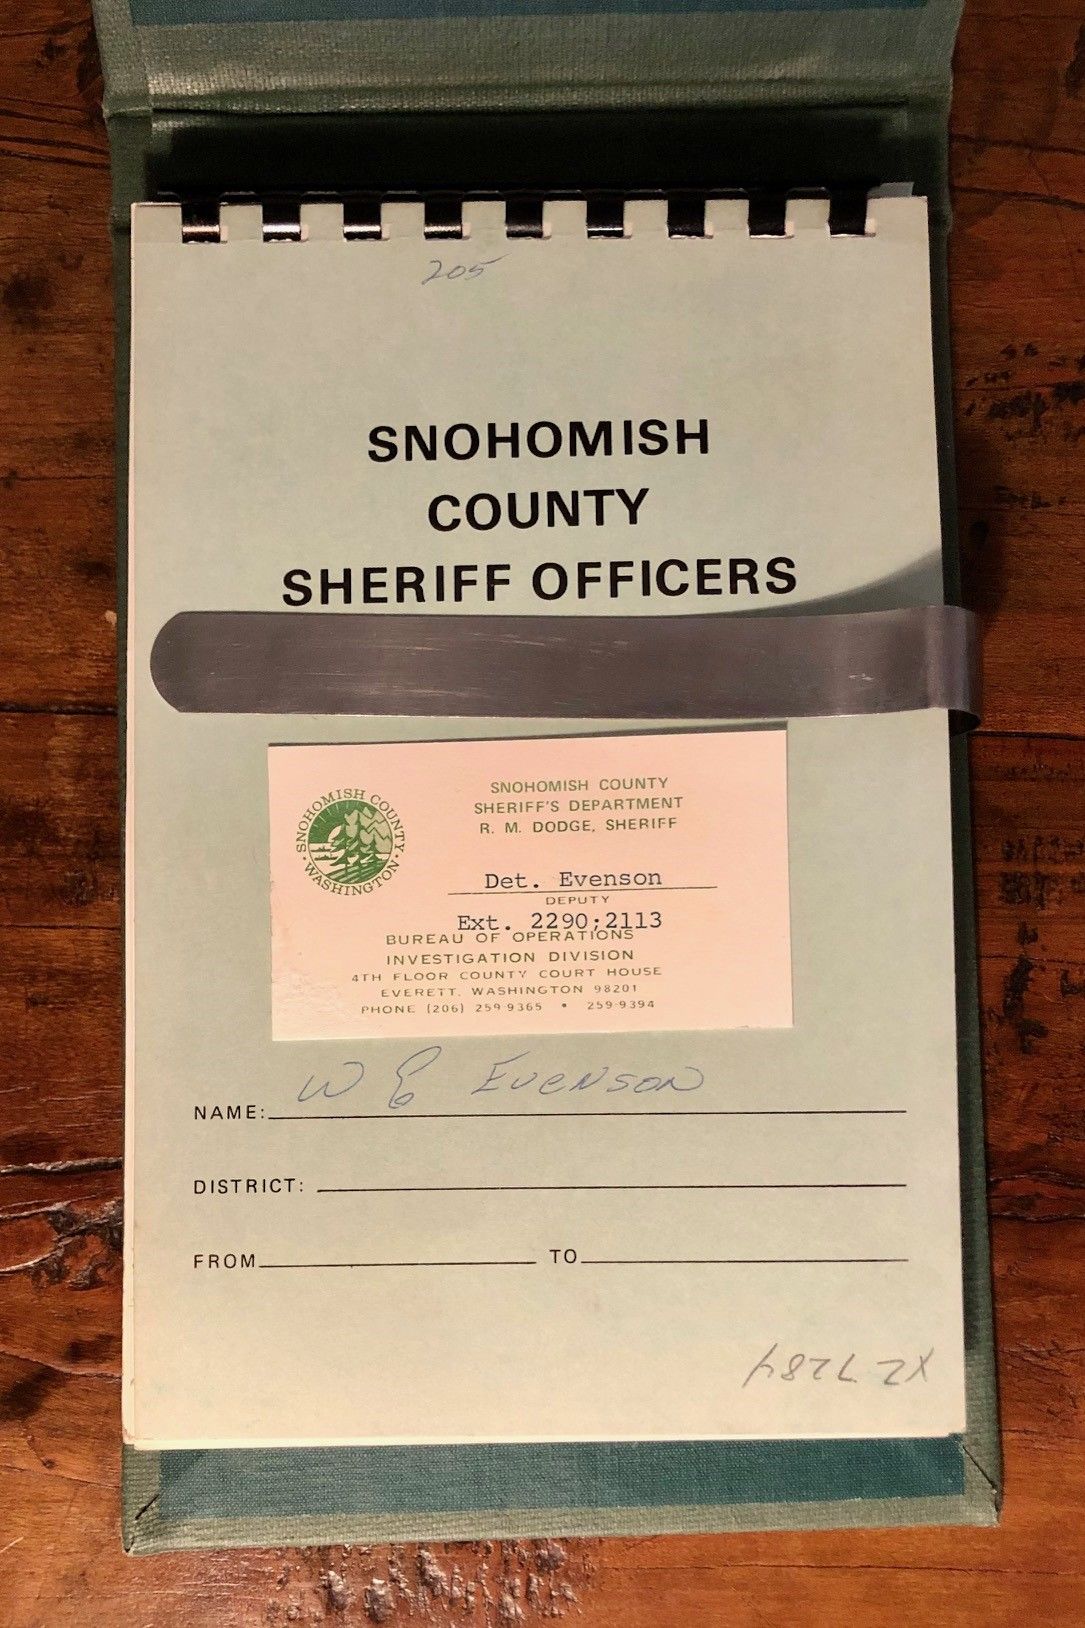 205
SNOHOMISH
COUNTY
SHERIFF OFFICERS
SNOHOMISH COUNTY
WASHINGTON
SNOHOMISH COUNTY
SHERIFF'S DEPARTMENT
R. M. DODGE, SHERIFF
Det. Evenson
DEPUTY
Ext. 2290;2113
BUREAU OF OPERATIONS
INVESTIGATION DIVISION
4TH FLOOR COUNTY COURT HOUSE
EVERETT, WASHINGTON 98201
PHONE (206) 259-9365 • 259-9394
NAME: W E Evenson
DISTRICT:
FROM TO